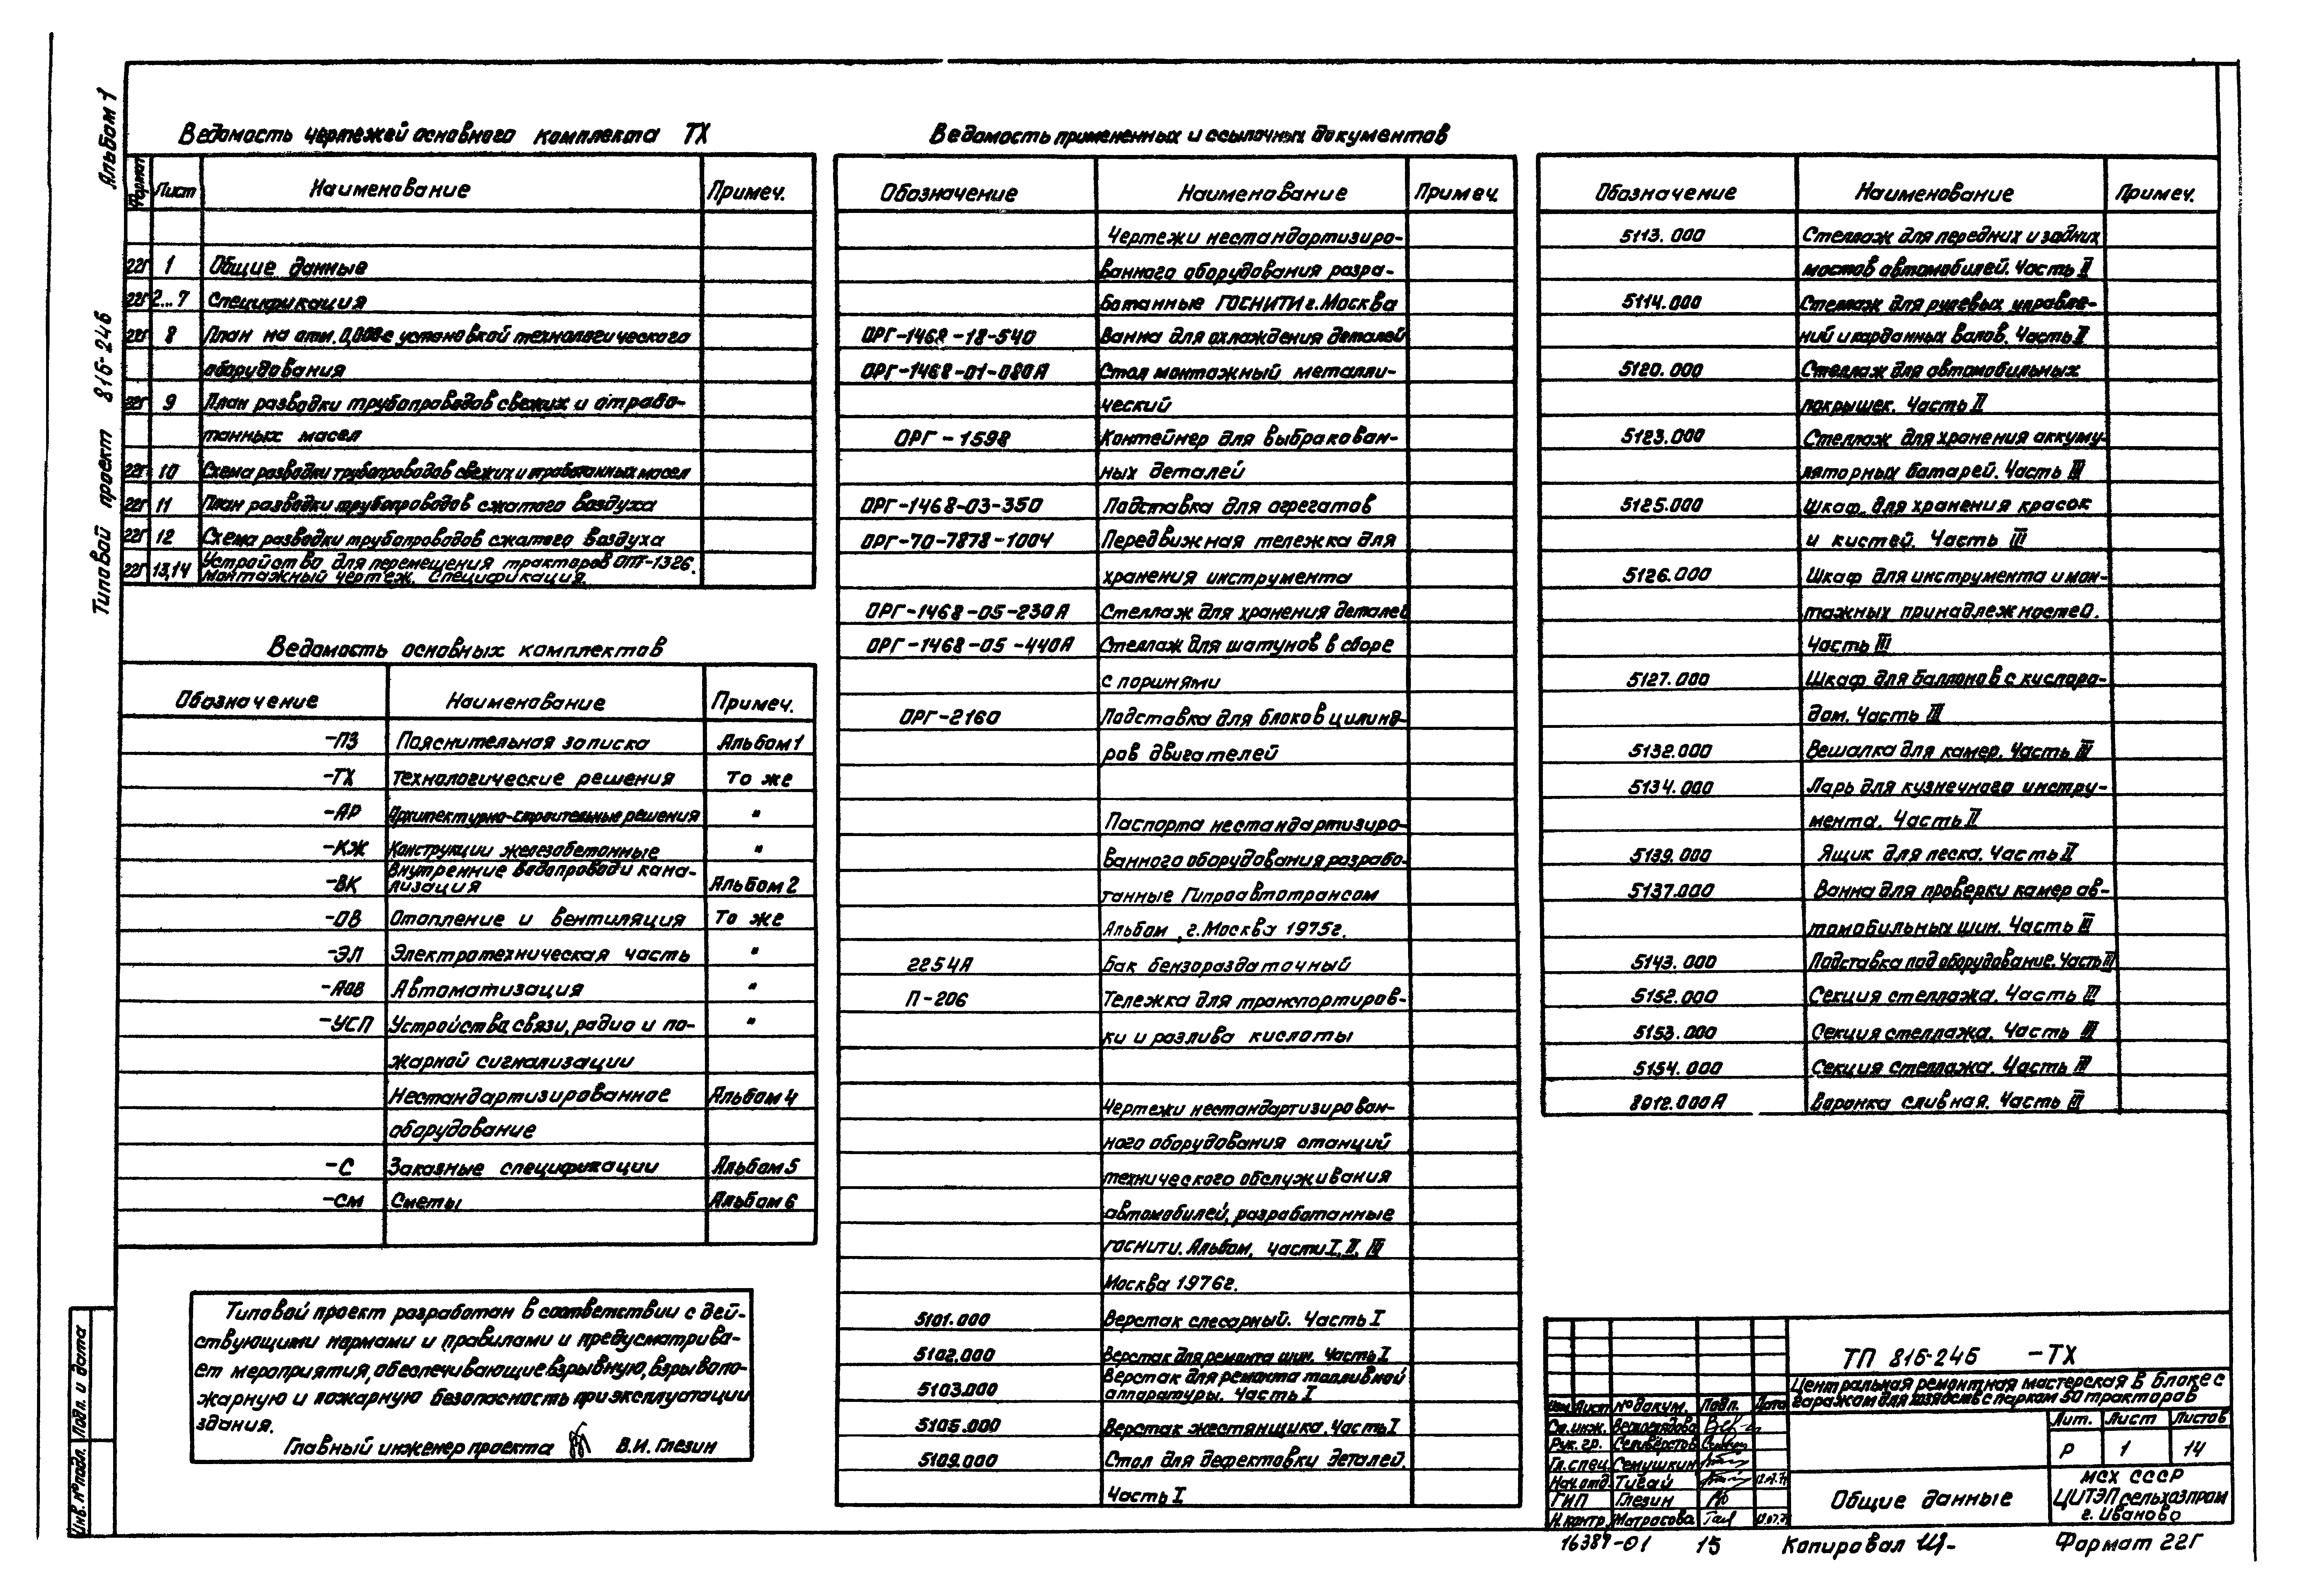 Альбом 1
Типовой проект 816-246
Ведомость чертежей основного комплекта ТХ
Формат Лист Наименование Примеч.
22Г 1 Общие данные
22Г 2...7 Спецификация
22Г 8 План на отм. 0,000 с установкой технологического
оборудования
22Г 9 План разводки трубопроводов свежих и отрабо-
танных масел
22Г 10 Схема разводки трубопроводов свежих и отработанных масел
22Г 11 План разводки трубопроводов сжатого воздуха
22Г 12 Схема разводки трубопроводов сжатого воздуха
22Г 13,14 Устройство для перемещения тракторов ОПТ-1326.
Монтажный чертеж. Спецификация.
Ведомость основных комплектов
Обозначение Наименование Примеч.
-ПЗ Пояснительная записка Альбом 1
-ТХ Технологические решения То же
-АР Архитектурно-строительные решения "
-КЖ Конструкции железобетонные "
-ВК Внутренние водопровод и кана-
лизация Альбом 2
-ОВ Отопление и вентиляция То же
-ЭЛ Электротехническая часть "
-АОВ Автоматизация "
-УСП Устройства связи, радио и по- "
жарной сигнализации
Нестандартизированное Альбом 4
оборудование
-С Заказные спецификации Альбом 5
-СМ Сметы Альбом 6
Типовой проект разработан в соответствии с дей-
ствующими нормами и правилами и предусматрива-
ет мероприятия, обеспечивающие взрывную, взрывопо-
жарную и пожарную безопасность при эксплуатации
здания.
Главный инженер проекта В.И. Глезин
Ведомость примененных и ссылочных документов
Обозначение Наименование Примеч.
Чертежи нестандартизиро-
ванного оборудования разра-
ботанные ГОСНИТИ г. Москва
ОРГ-1468-18-540 Ванна для охлаждения деталей
ОРГ-1468-01-080А Стол монтажный металли-
ческий
ОРГ-1598 Контейнер для выбракован-
ных деталей
ОРГ-1468-03-350 Подставка для агрегатов
ОРГ-70-7878-1004 Передвижная тележка для
хранения инструмента
ОРГ-1468-05-230А Стеллаж для хранения деталей
ОРГ-1468-05-440А Стеллаж для шатунов в сборе
с поршнями
ОРГ-2160 Подставка для блоков цилинд-
ров двигателей
Паспорта нестандартизиро-
ванного оборудования разрабо-
танные Гипроавтотрансом
Альбом , г. Москва 1975г.
2254А Бак бензораздаточный
П-206 Тележка для транспортиров-
ки и разлива кислоты
Чертежи нестандартизирован-
ного оборудования станций
технического обслуживания
автомобилей, разработанные
ГОСНИТИ. Альбом, части I, II, III
Москва 1976г.
5101.000 Верстак слесарный. Часть I
5102.000 Верстак для ремонта шин. Часть I
5103.000 Верстак для ремонта топливной
аппаратуры. Часть I
5105.000 Верстак жестянщика. Часть I
5109.000 Стол для дефектовки деталей.
Часть I
Обозначение Наименование Примеч.
5113.000 Стеллаж для передних и задних
мостов автомобилей. Часть II
5114.000 Стеллаж для рулевых управле-
ний и карданных валов. Часть II
5120.000 Стеллаж для автомобильных
покрышек. Часть II
5123.000 Стеллаж для хранения аккуму-
ляторных батарей. Часть III
5125.000 Шкаф для хранения красок
и кистей. Часть III
5126.000 Шкаф для инструмента и мон-
тажных принадлежностей.
Часть III
5127.000 Шкаф для баллонов с кислоро-
дом. Часть III
5132.000 Вешалка для камер. Часть III
5134.000 Ларь для кузнечного инстру-
мента. Часть II
5139.000 Ящик для песка. Часть II
5137.000 Ванна для проверки камер ав-
томобильных шин. Часть III
5143.000 Подставка под оборудование. Часть III
5152.000 Секция стеллажа. Часть III
5153.000 Секция стеллажа. Часть III
5154.000 Секция стеллажа. Часть III
8012.000А Воронка сливная. Часть III
ТП 816-246 -ТХ
Центральная ремонтная мастерская в блоке с
гаражом для хозяйств с парком 50 тракторов
Изм. Лист № докум. Подп. Дата
Ст. инж.
Рук. гр. Селивёрстов
Гл. спец. Семушкин
Нач. отд. Тибай
ГИП Глезин
Н. контр. Матросова
Лит. Лист Листов
Р 1 14
Общие данные
МСХ СССР
ЦИТЭПсельхозпром
г. Иваново
Инв. № подл. Подп. и дата
16389-01 15 Копировал Формат 22Г